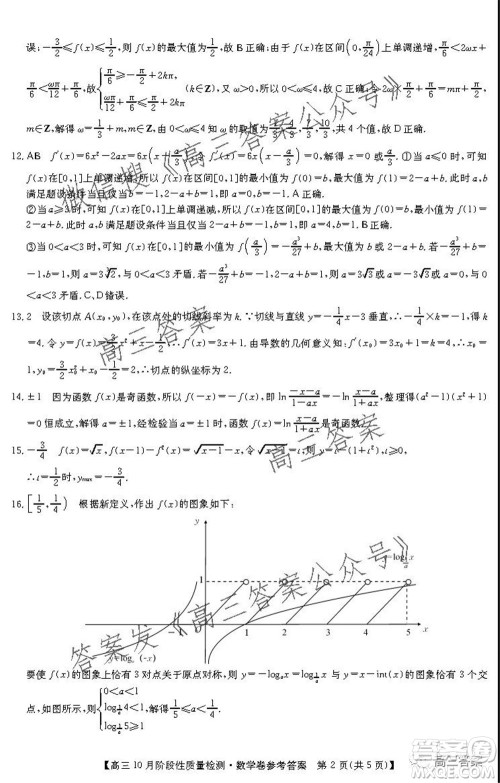 误:-3/2≤f(x)≤1/2,则 f(x)的最大值为1/2,故 B 正确;由于 f(x)在区间(0,π/24)上单调递增,π/6<2ωx+
π/6<ωπ/12+π/6,故{π/6≥-π/2+2kπ, ωπ/12+π/6≤π/2+2kπ (k∈Z),又 ω>0,所以 0<ω≤4,故 C 正确;
m∈Z,解得 ω=1/3+m,m∈Z,由 0<ω≤4 知 ω 的取值为1/3,4/3,7/3,10/3,共 4 个值,故 D 正确.
12.AB f′(x)=6x²-2ax=6x(x-a/3).令 f′(x)=6x(x-a/3)=0,解得 x=0 或a/3.①当 a≤0 时,可知
f(x)在[0,1]上单调递增,所以 f(x)在区间[0,1]的最小值为 f(0)=b,最大值为 f(1)=2-a+b.此时 a,b
满足题设条件当且仅当 b=-1,2-a+b=1,即 a=0,b=-1.A 正确.
②当 a≥3 时,可知 f(x)在[0,1]上单调递减,所以 f(x)在区间[0,1]的最大值为 f(0)=b,最小值为 f(1)=
2-a+b.此时 a,b 满足题设条件当且仅当 2-a+b=-1,b=1,即 a=4,b=1.B 正确.
③当 0<a<3 时,可知 f(x)在[0,1]的最小值为 f(a/3)=-a³/27+b,最大值为 b 或 2-a+b.若-a³/27+b=
-1,b=1,则 a=3∛2,与 0<a<3 矛盾.若-a³/27+b=-1,2-a+b=1,则 a=3√3 或 a=-3√3 或 a=0,与 0
<a<3 矛盾.C、D 错误.
13.2 设该切点 A(x₀,y₀),在该点处的切线斜率为 k.∵切线与直线 y=-1/4x-3 垂直,∴-1/4k=-1,得 k
=4.令 f(x)=3/2x²+x,∴f′(x)=3x+1.由导数的几何意义知:f′(x₀)=3x₀+1=4,
x₀=1,y₀=3/2x₀²+x₀-1/2=2,∴切点的纵坐标为 2.
14.±1 因为函数 f(x)是奇函数,所以 f(-x)=-f(x),即 ln (-x-a)/(1-ax)=-ln (x-a)/(1+ax),整理得(a²-1)(x²+1)
=0 恒成立,解得 a=±1,经检验当 a=±1 时,f(x)是奇函数.
15.-3/4 f(x)=√x,f(x-1)-f²(x)=√(x-1)-x,令√(x-1)=t(t≥0),则 y=t-(1+t²),
∴t=1/2时,yₘₐₓ=-3/4.
16.[1/5,1/4) 根据新定义,作出 f(x)的图象如下:
y
1
-1 O 1 2 3 4 5 x
要使 f(x)的图象上恰有 3 对点关于原点对称,则 y=-logₐx 与 y=x-int(x)的图象恰有 3 个交
点,则应有{0<a<1, 4<1, 5≥1 解得1/5≤a<1/4.
【高三 10 月阶段性质量检测·数学卷参考答案 第 2 页(共 5 页)】
微信搜《高三答案公众号》
高三答案
高三答案
答案发《高三答案公众号》
高三答案